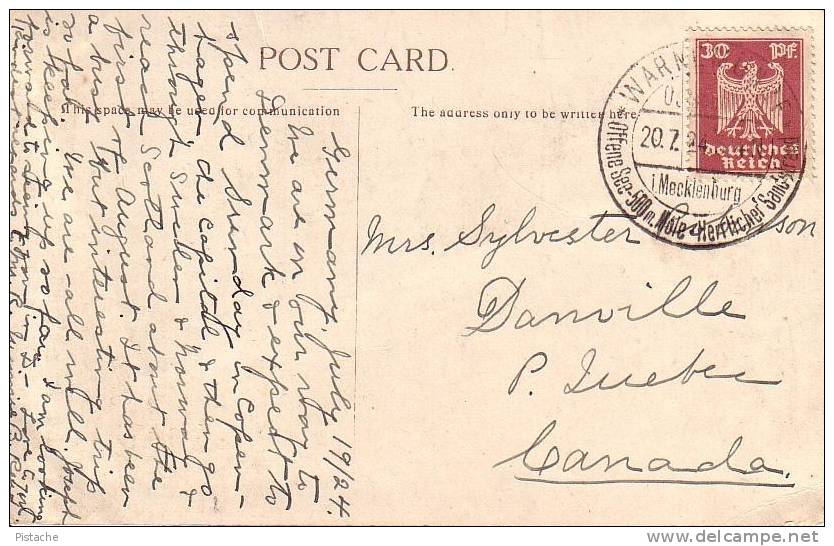 POST CARD.
This space may be used for communication
The address only to be written here
30 Pf.
Deutsches
Reich
WARN
20.7.24
i. Mecklenburg
Offene See-500 m. Mole-Herrlicher
Germany, July 19/24.
We are on our way to
Denmark & expect to
spend Sunday in Copen-
hagen the capital & then go
through Sweden & Norway &
reach Scotland about the
first of August. It has been
a busy but interesting trip
so far. We are all well.
is keeping up so far. I am looking
forward to
Mrs. Sylvester
Danville
P. Quebec
Canada.
Pistache
www.delcampe.net